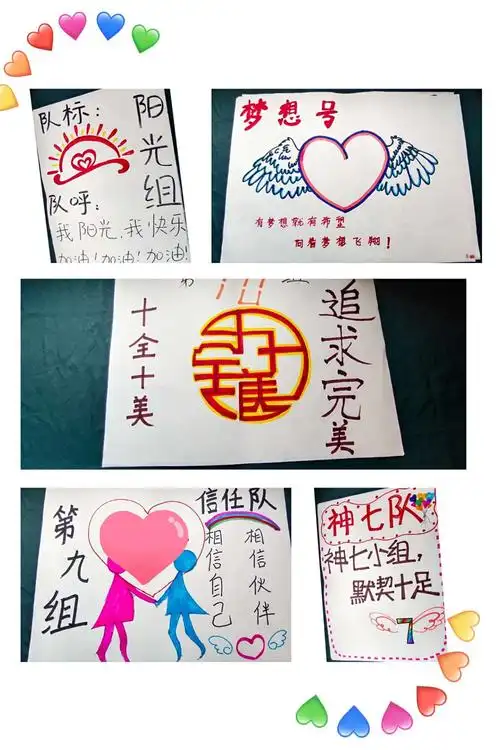 队标：
阳光组
队呼：
我阳光，我快乐
加油！加油！加油！
梦想号
有梦想就有希望
向着梦想飞翔！
第10组
十全十美
十全十美
追求完美
第九组
信任队
相信自己
相信伙伴
神七队
神七小组，
默契十足
7